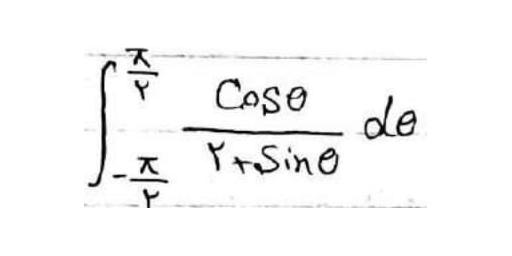 ∫_{-π/۲}^{π/۲} Cosθ / (۲+Sinθ) dθ